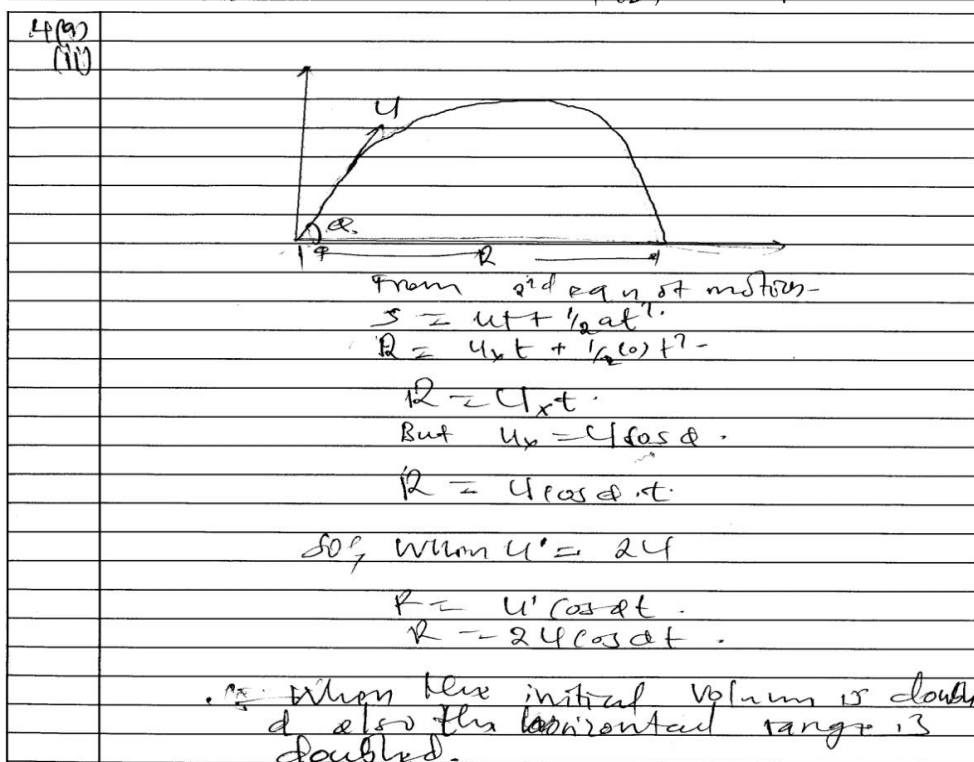 4(a)
(ii)
U
θ
R
From 2nd eqn of motion-
S = ut + 1/2 at².
R = uₓt + 1/2(0)t² -
R = Uₓt.
But uₓ = U cos θ.
R = U cos θ.t.
So, When U' = 2U
R = U' cos θt.
R = 2U cos θt.
∴ When the initial is doubl
d also the horizontal range is
doubled.